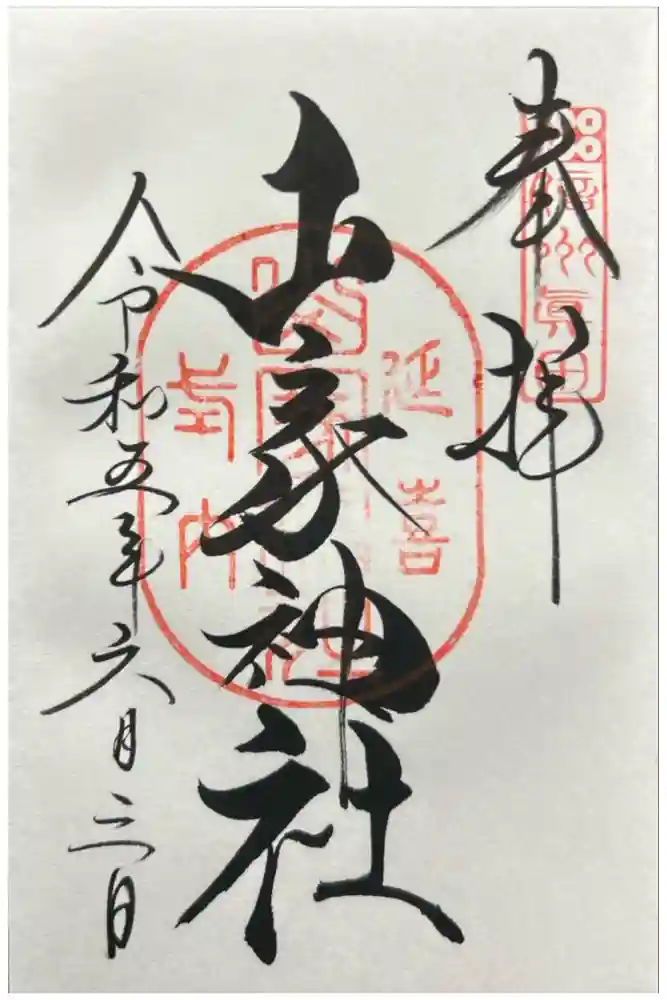 奉拝
信州真田
山家神社
延喜
式内
令和五年六月三日